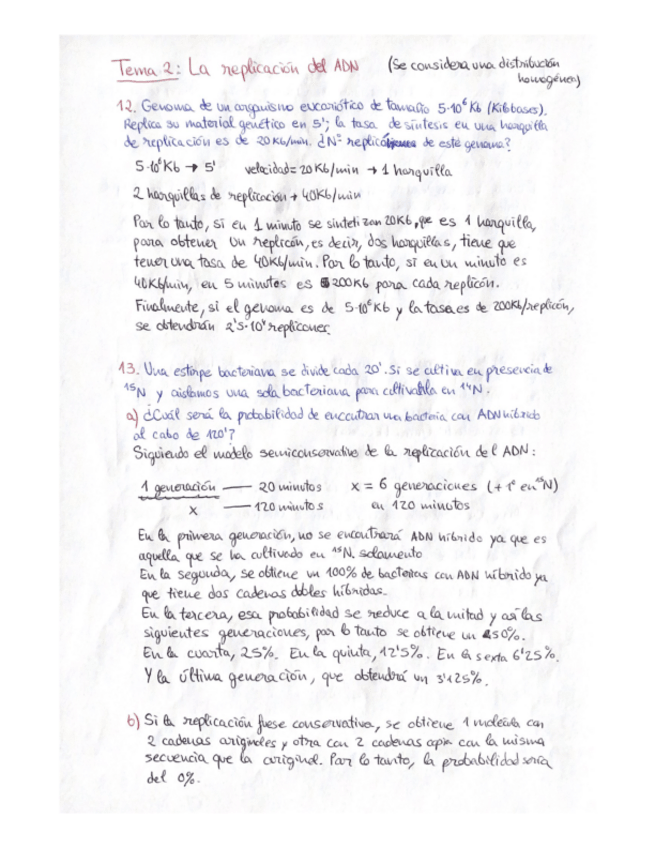 Tema 2: La replicación del ADN (Se considera una distribución
homogénea)
12. Genoma de un organismo eucariótico de tamaño 5·10⁶ Kb (Kilobases).
Replica su material genético en 5'; la tasa de síntesis en una horquilla
de replicación es de 20Kb/min. ¿Nº replicones de este genoma?
5·10⁶Kb → 5' velocidad = 20Kb/min → 1 horquilla
2 horquillas de replicación → 40Kb/min
Por lo tanto, si en 1 minuto se sintetizan 20Kb, que es 1 horquilla,
para obtener un replicón, es decir, dos horquillas, tiene que
tener una tasa de 40Kb/min. Por lo tanto, si en un minuto es
40Kb/min, en 5 minutos es 200Kb para cada replicón.
Finalmente, si el genoma es de 5·10⁶Kb y la tasa es de 200Kb/replicón,
se obtendrán 2'5·10⁴ replicones.
13. Una estirpe bacteriana se divide cada 20'. Si se cultiva en presencia de
¹⁵N y aislamos una sola bacteriana para cultivarla en ¹⁴N.
a) ¿Cuál será la probabilidad de encontrar una bacteria con ADN híbrido
al cabo de 120'?
Siguiendo el modelo semiconservativo de la replicación del ADN:
1 generación — 20 minutos x = 6 generaciones (+1ª en ¹⁵N)
x — 120 minutos en 120 minutos
En la primera generación, no se encontrará ADN híbrido ya que es
aquella que se ha cultivado en ¹⁵N solamente
En la segunda, se obtiene un 100% de bacterias con ADN híbrido ya
que tiene dos cadenas dobles híbridas.
En la tercera, esa probabilidad se reduce a la mitad y así las
siguientes generaciones, por lo tanto se obtiene un 50%.
En la cuarta, 25%. En la quinta, 12'5%. En la sexta 6'25%.
Y la última generación, que obtendrá un 3'125%.
b) Si la replicación fuese conservativa, se obtiene 1 molécula con
2 cadenas originales y otra con 2 cadenas copia con la misma
secuencia que la original. Por lo tanto, la probabilidad sería
del 0%.